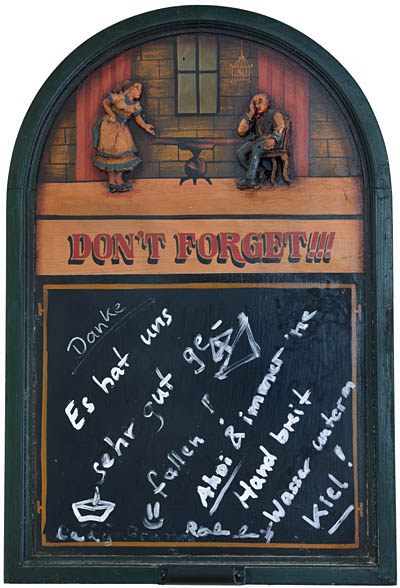 DON'T FORGET!!!
Danke
Es hat uns
sehr gut ge-
fallen!
Ahoi & immer 'ne
Hand breit
Wasser unterm
Kiel!